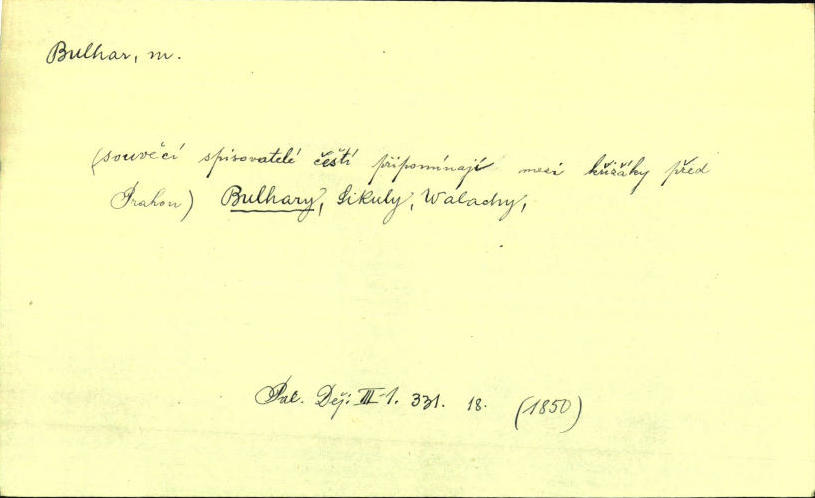 Bulhar, m.
(souvěcí spisovatelé čeští připomínají mezi křižáky před
Prahou) Bulhary, Sikuly, Walachy,
Pal. Děj. III-1. 331. 18. (1850)